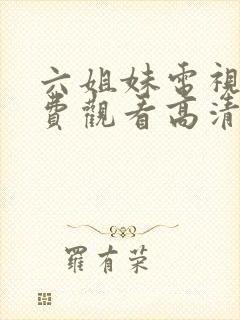 六姐妹電視
費觀看高清
羅有荣